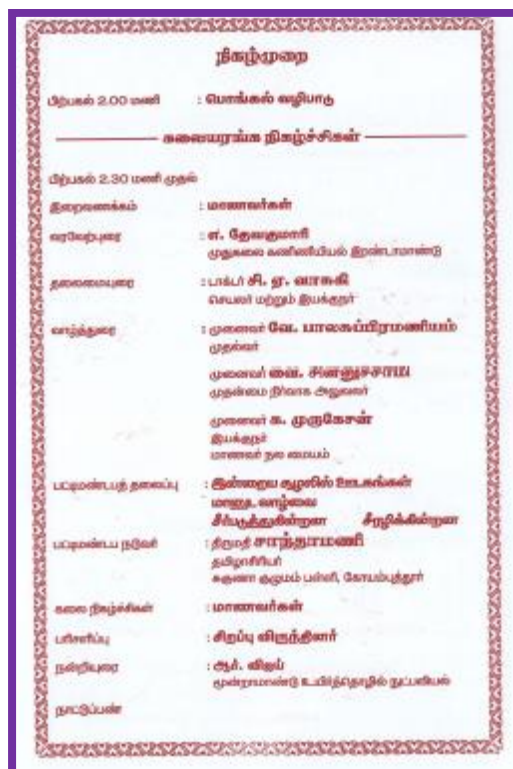 நிகழ்முறை
பிற்பகல் 2.00 மணி : பொங்கல் வழிபாடு
கலையரங்க நிகழ்ச்சிகள்
பிற்பகல் 2.30 மணி முதல்
இறைவணக்கம் : மாணவர்கள்
வரவேற்புரை : எ. தேவகுமாரி
முதுகலை கணிணியியல் இரண்டாமாண்டு
தலைமையுரை : டாக்டர் சி. ஏ. வாசுகி
செயலர் மற்றும் இயக்குநர்
வாழ்த்துரை : முனைவர் வே. பாலசுப்பிரமணியம்
முதல்வர்
முனைவர் வை. சின்னுச்சாமி
முதன்மை நிர்வாக அலுவலர்
முனைவர் க. முருகேசன்
இயக்குநர்
மாணவர் நல மையம்
பட்டிமண்டபத் தலைப்பு : இன்றைய சூழலில் ஊடகங்கள்
மானுட வாழ்வை
சீர்படுத்துகின்றன சீரழிக்கின்றன
பட்டிமண்டப நடுவர் : திருமதி சாந்தாமணி
தமிழாசிரியர்
சுகுணா குழுமம் பள்ளி, கோயம்புத்தூர்
கலை நிகழ்ச்சிகள் : மாணவர்கள்
பரிசளிப்பு : சிறப்பு விருந்தினர்
நன்றியுரை : ஆர். விஜய்
மூன்றாமாண்டு உயிர்த்தொழில் நுட்பவியல்
நாட்டுப்பண்